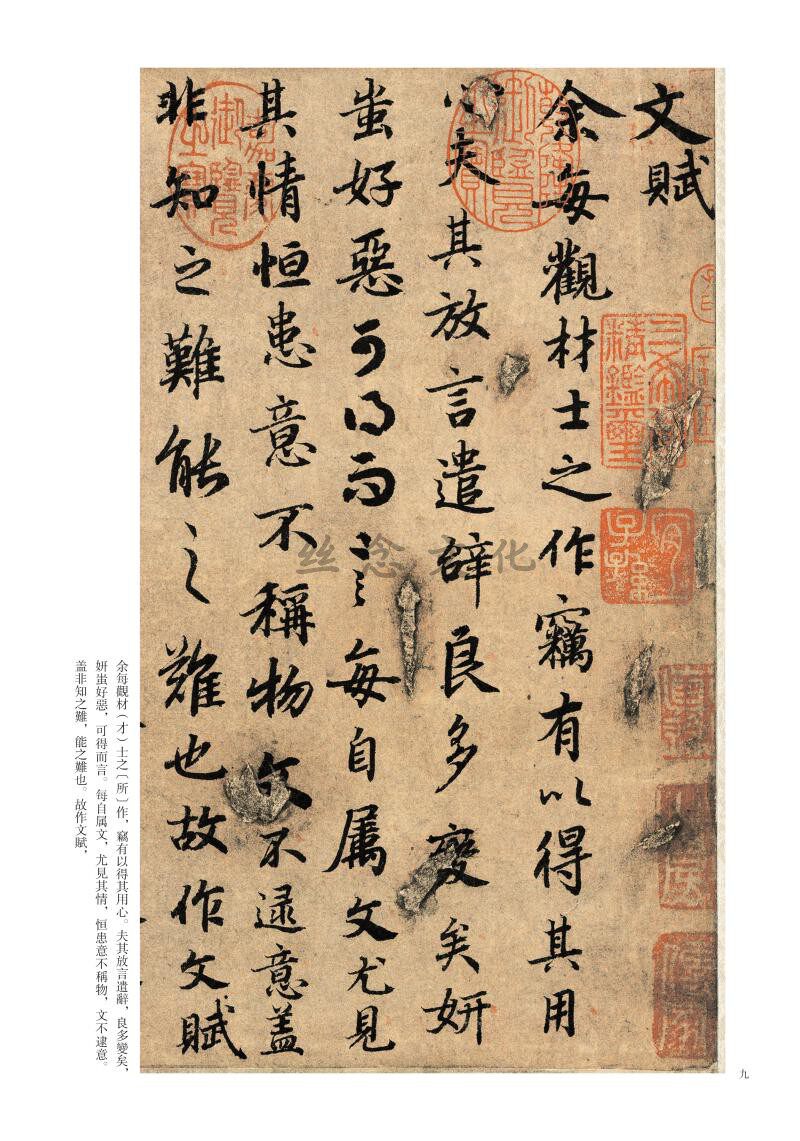 文賦
余每觀材士之作竊有以得其用
心夫其放言遣辭良多變矣妍
蚩好惡可得而言每自属文尤見
其情恒患意不稱物文不逮意盖
非知之難能之難也故作文賦
余每觀材（才）士之〔所〕作，竊有以得其用心。夫其放言遣辭，良多變矣，
妍蚩好惡，可得而言。每自属文，尤見其情，恒患意不稱物，文不逮意。
盖非知之難，能之難也。故作文賦，
九
丝念文化